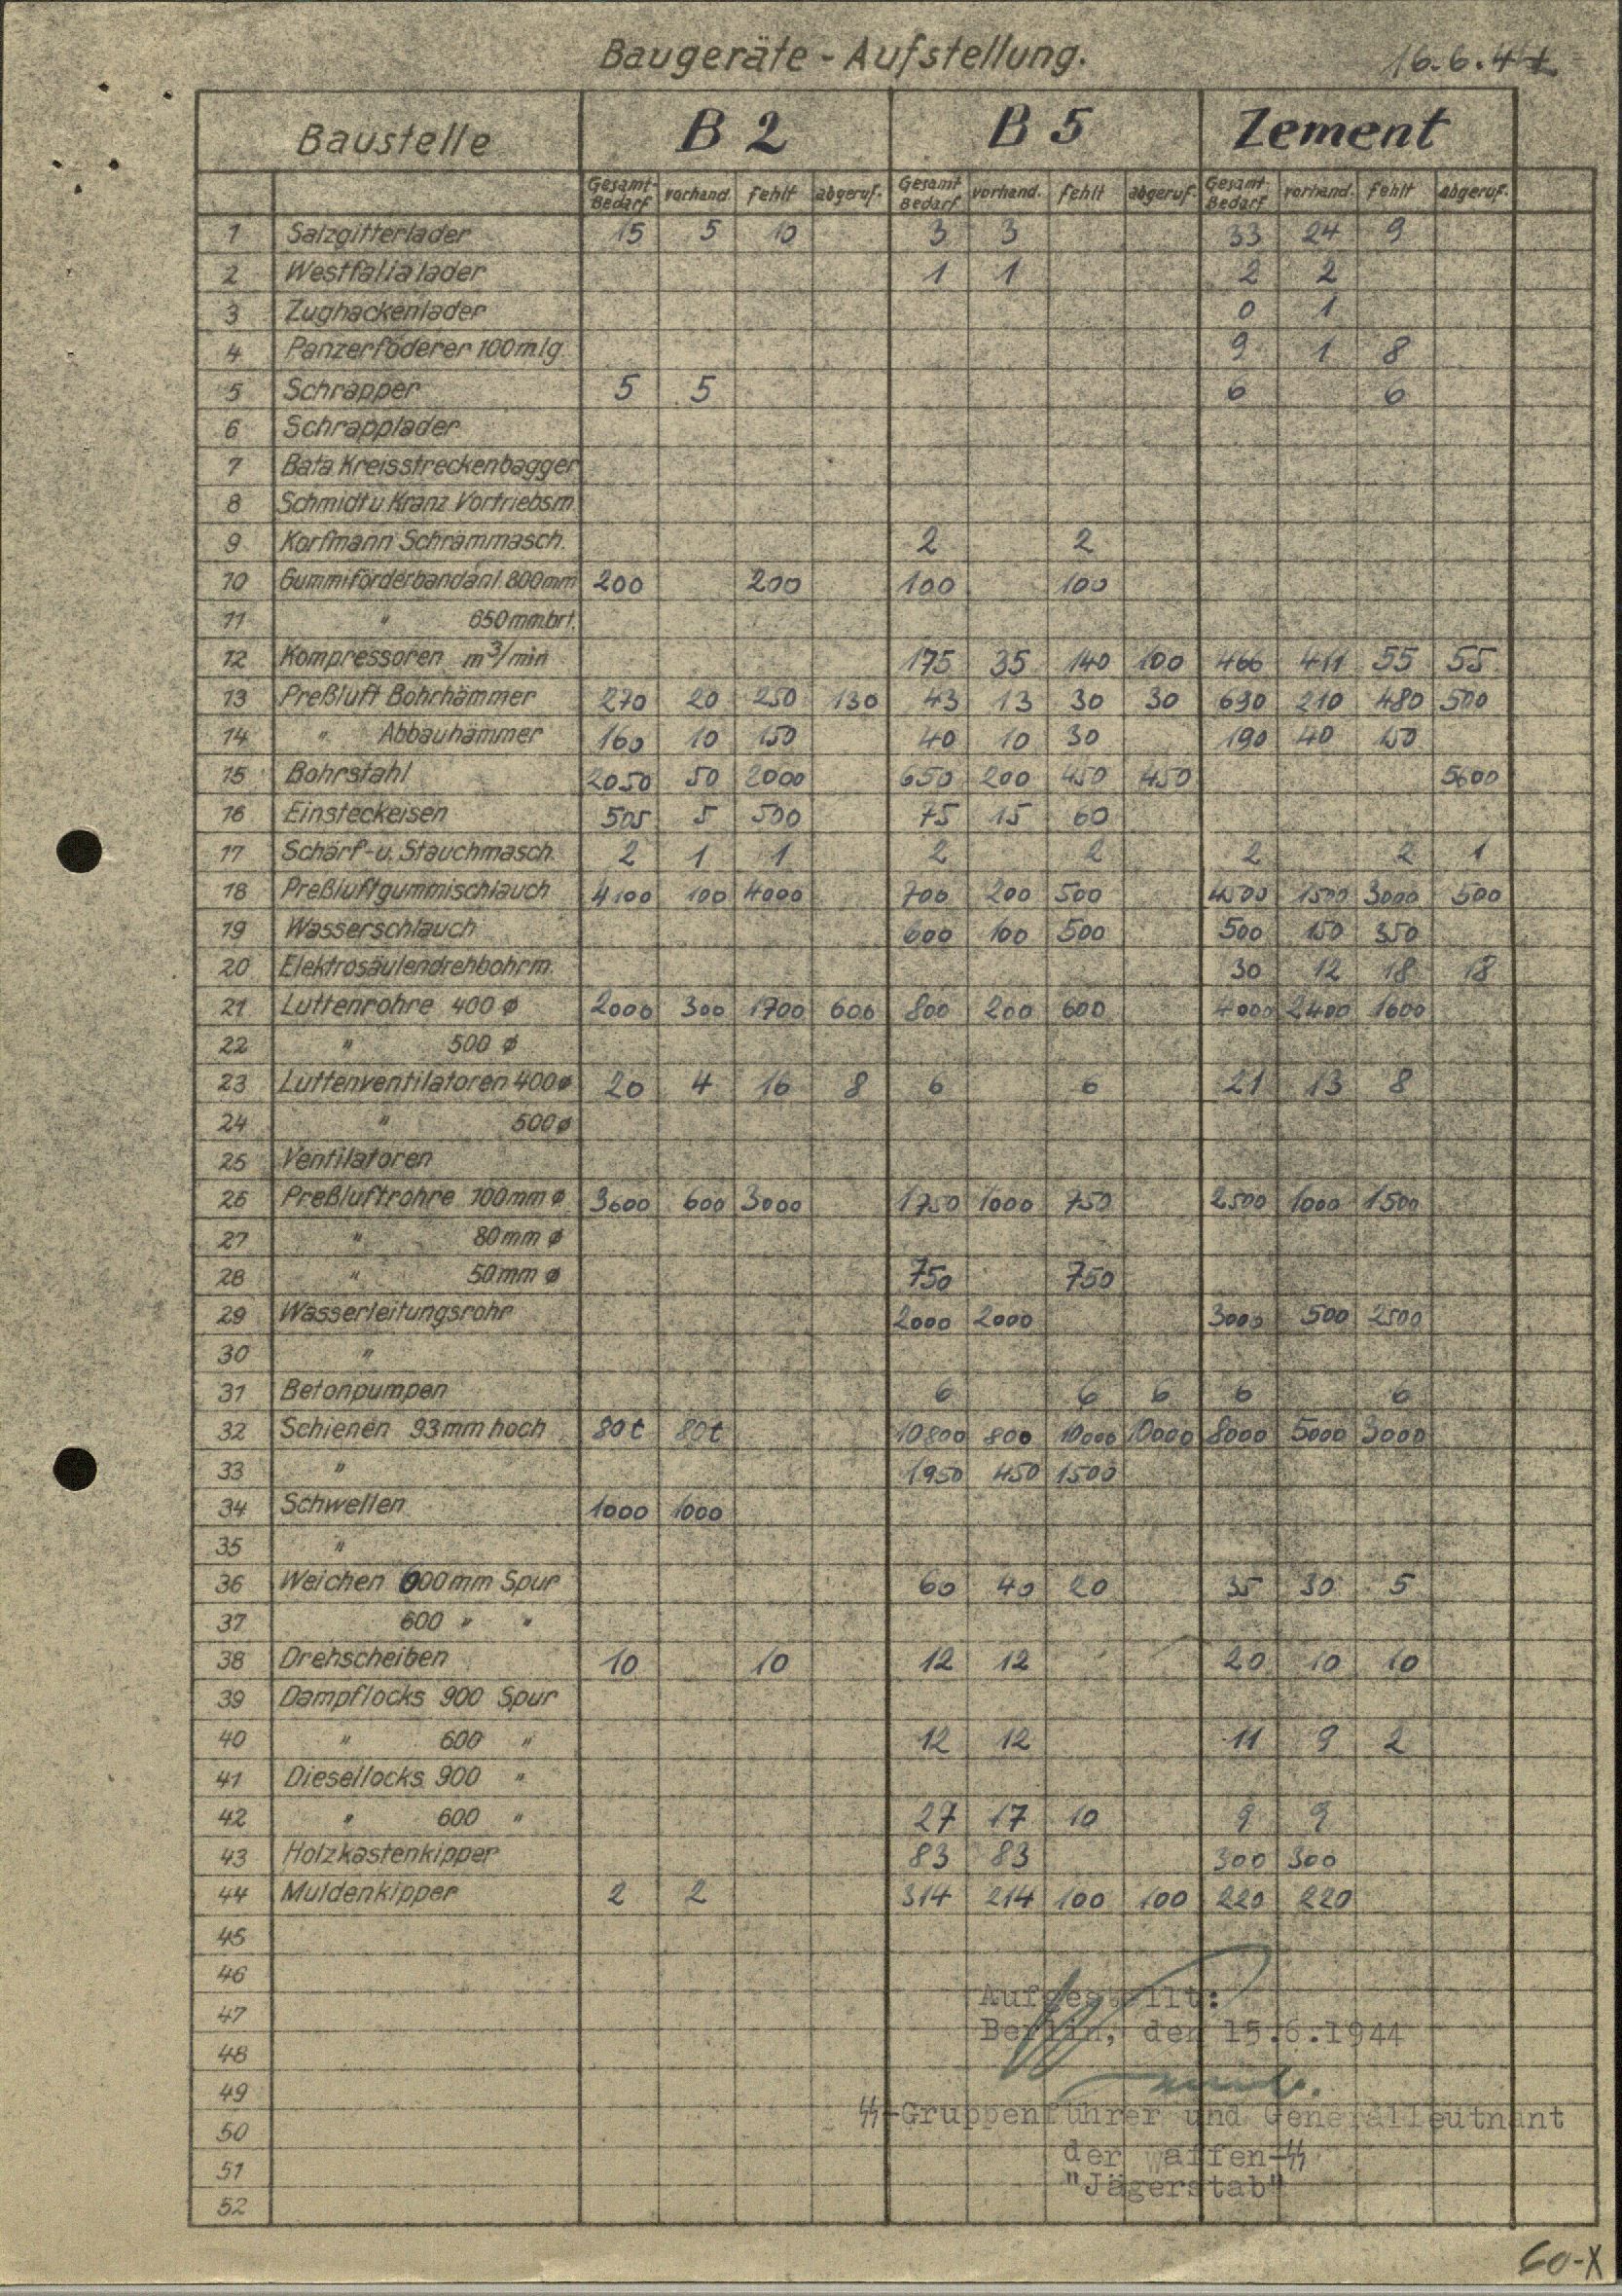 Baugeräte - Aufstellung.
16.6.44
Baustelle B 2 B 5 Zement
Gesamt-Bedarf vorhand. fehlt abgeruf. Gesamt Bedarf vorhand. fehlt abgeruf. Gesamt Bedarf vorhand. fehlt abgeruf.
1 Salzgitterlader 15 5 10 3 3 33 24 9
2 Westfalialader 1 1 2 2
3 Zughackenlader 0 1
4 Panzerföderer 100mlg 9 1 8
5 Schrapper 5 5 6 6
6 Schrapplader
7 Bata Kreisstreckenbagger
8 Schmidt u Kranz Vortriebsm.
9 Korfmann Schrämmasch. 2 2
10 Gummiförderbandanl. 800mm 200 200 100 100
11 " 650mmbrt.
12 Kompressoren m³/min 175 35 140 100 466 411 55 55
13 Preßluft Bohrhämmer 270 20 250 130 43 13 30 30 690 210 480 500
14 " Abbauhämmer 160 10 150 40 10 30 190 40 150
15 Bohrstahl 2050 50 2000 650 200 450 450 5600
16 Einsteckeisen 505 5 500 75 15 60
17 Schärf- u. Stauchmasch. 2 1 1 2 2 2 2 1
18 Preßluftgummischlauch 4100 100 4000 700 200 500 4500 1500 3000 500
19 Wasserschlauch 600 100 500 500 150 350
20 Elektrosäulendrehbohrm. 30 12 18 18
21 Luttenrohre 400 ø 2000 300 1700 600 800 200 600 4000 2400 1600
22 " 500 ø
23 Luttenventilatoren 400ø 20 4 16 8 6 6 21 13 8
24 " 500ø
25 Ventilatoren
26 Preßluftrohre 100mm ø 3600 600 3000 1750 1000 750 2500 1000 1500
27 " 80mm ø
28 " 50mm ø 750 750
29 Wasserleitungsrohr 2000 2000 3000 500 2500
30 "
31 Betonpumpen 6 6 6 6 6
32 Schienen 93mm hoch 80t 80t 10800 800 10000 10000 8000 5000 3000
33 " 1950 450 1500
34 Schwellen 1000 1000
35 "
36 Weichen 600mm Spur 60 40 20 35 30 5
37 600 " "
38 Drehscheiben 10 10 12 12 20 10 10
39 Dampflocks 900 Spur
40 " 600 " 12 12 11 9 2
41 Diesellocks 900 "
42 " 600 " 27 17 10 9 9
43 Holzkastenkipper 83 83 300 300
44 Muldenkipper 2 2 314 214 100 100 220 220
45
46
47
48
49
50
51
52
Aufgestellt:
Berlin, den 15.6.1944
ᛋᛋ-Gruppenführer und Generalleutnant
der Waffen-ᛋᛋ
"Jägerstab"
60-X